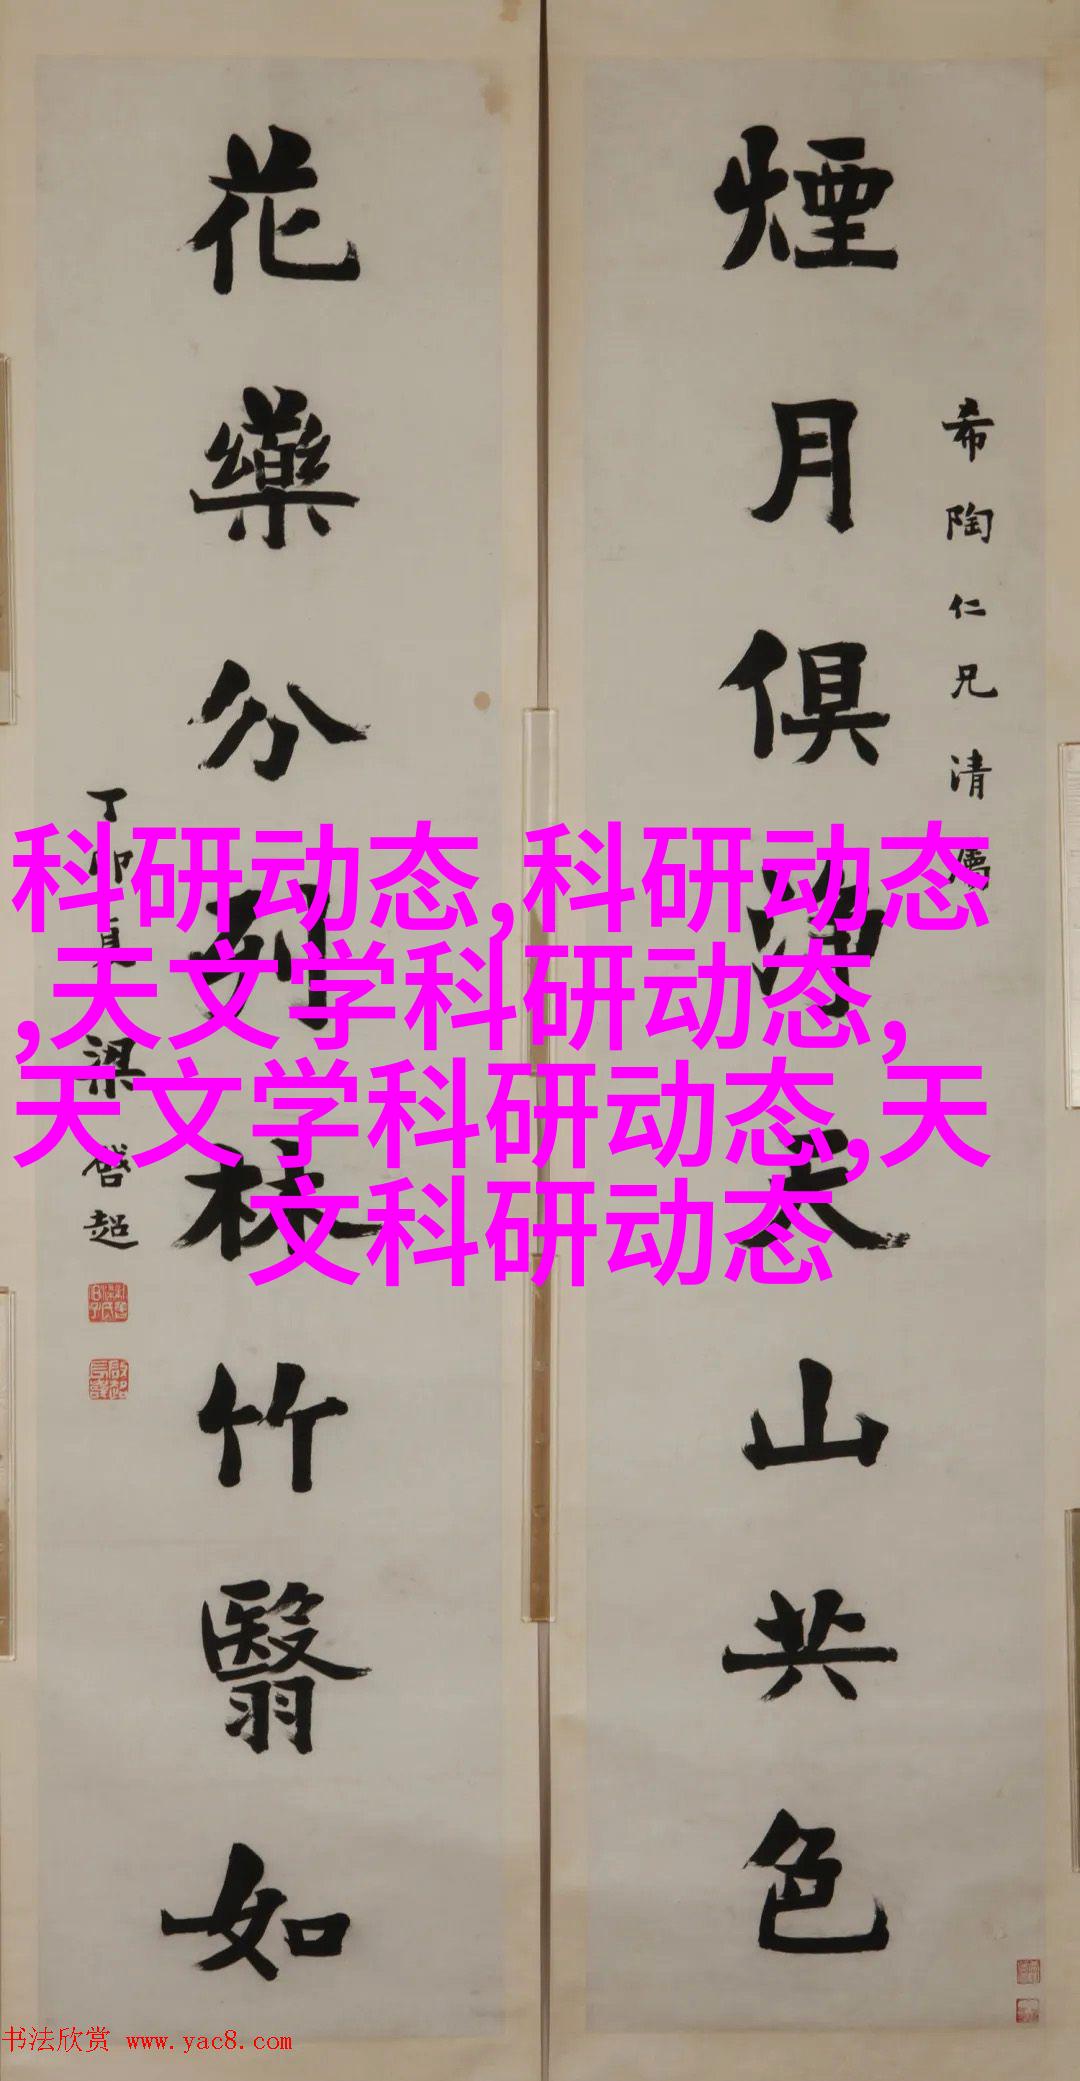 煙月俱
山共色
希陶仁兄清
花藥分列
林竹翳如
丁卯
梁啓超
科研动态,科研动态
,天文学科研动态,
天文学科研动态,天
文科研动态
书法欣赏 www.yac8.com